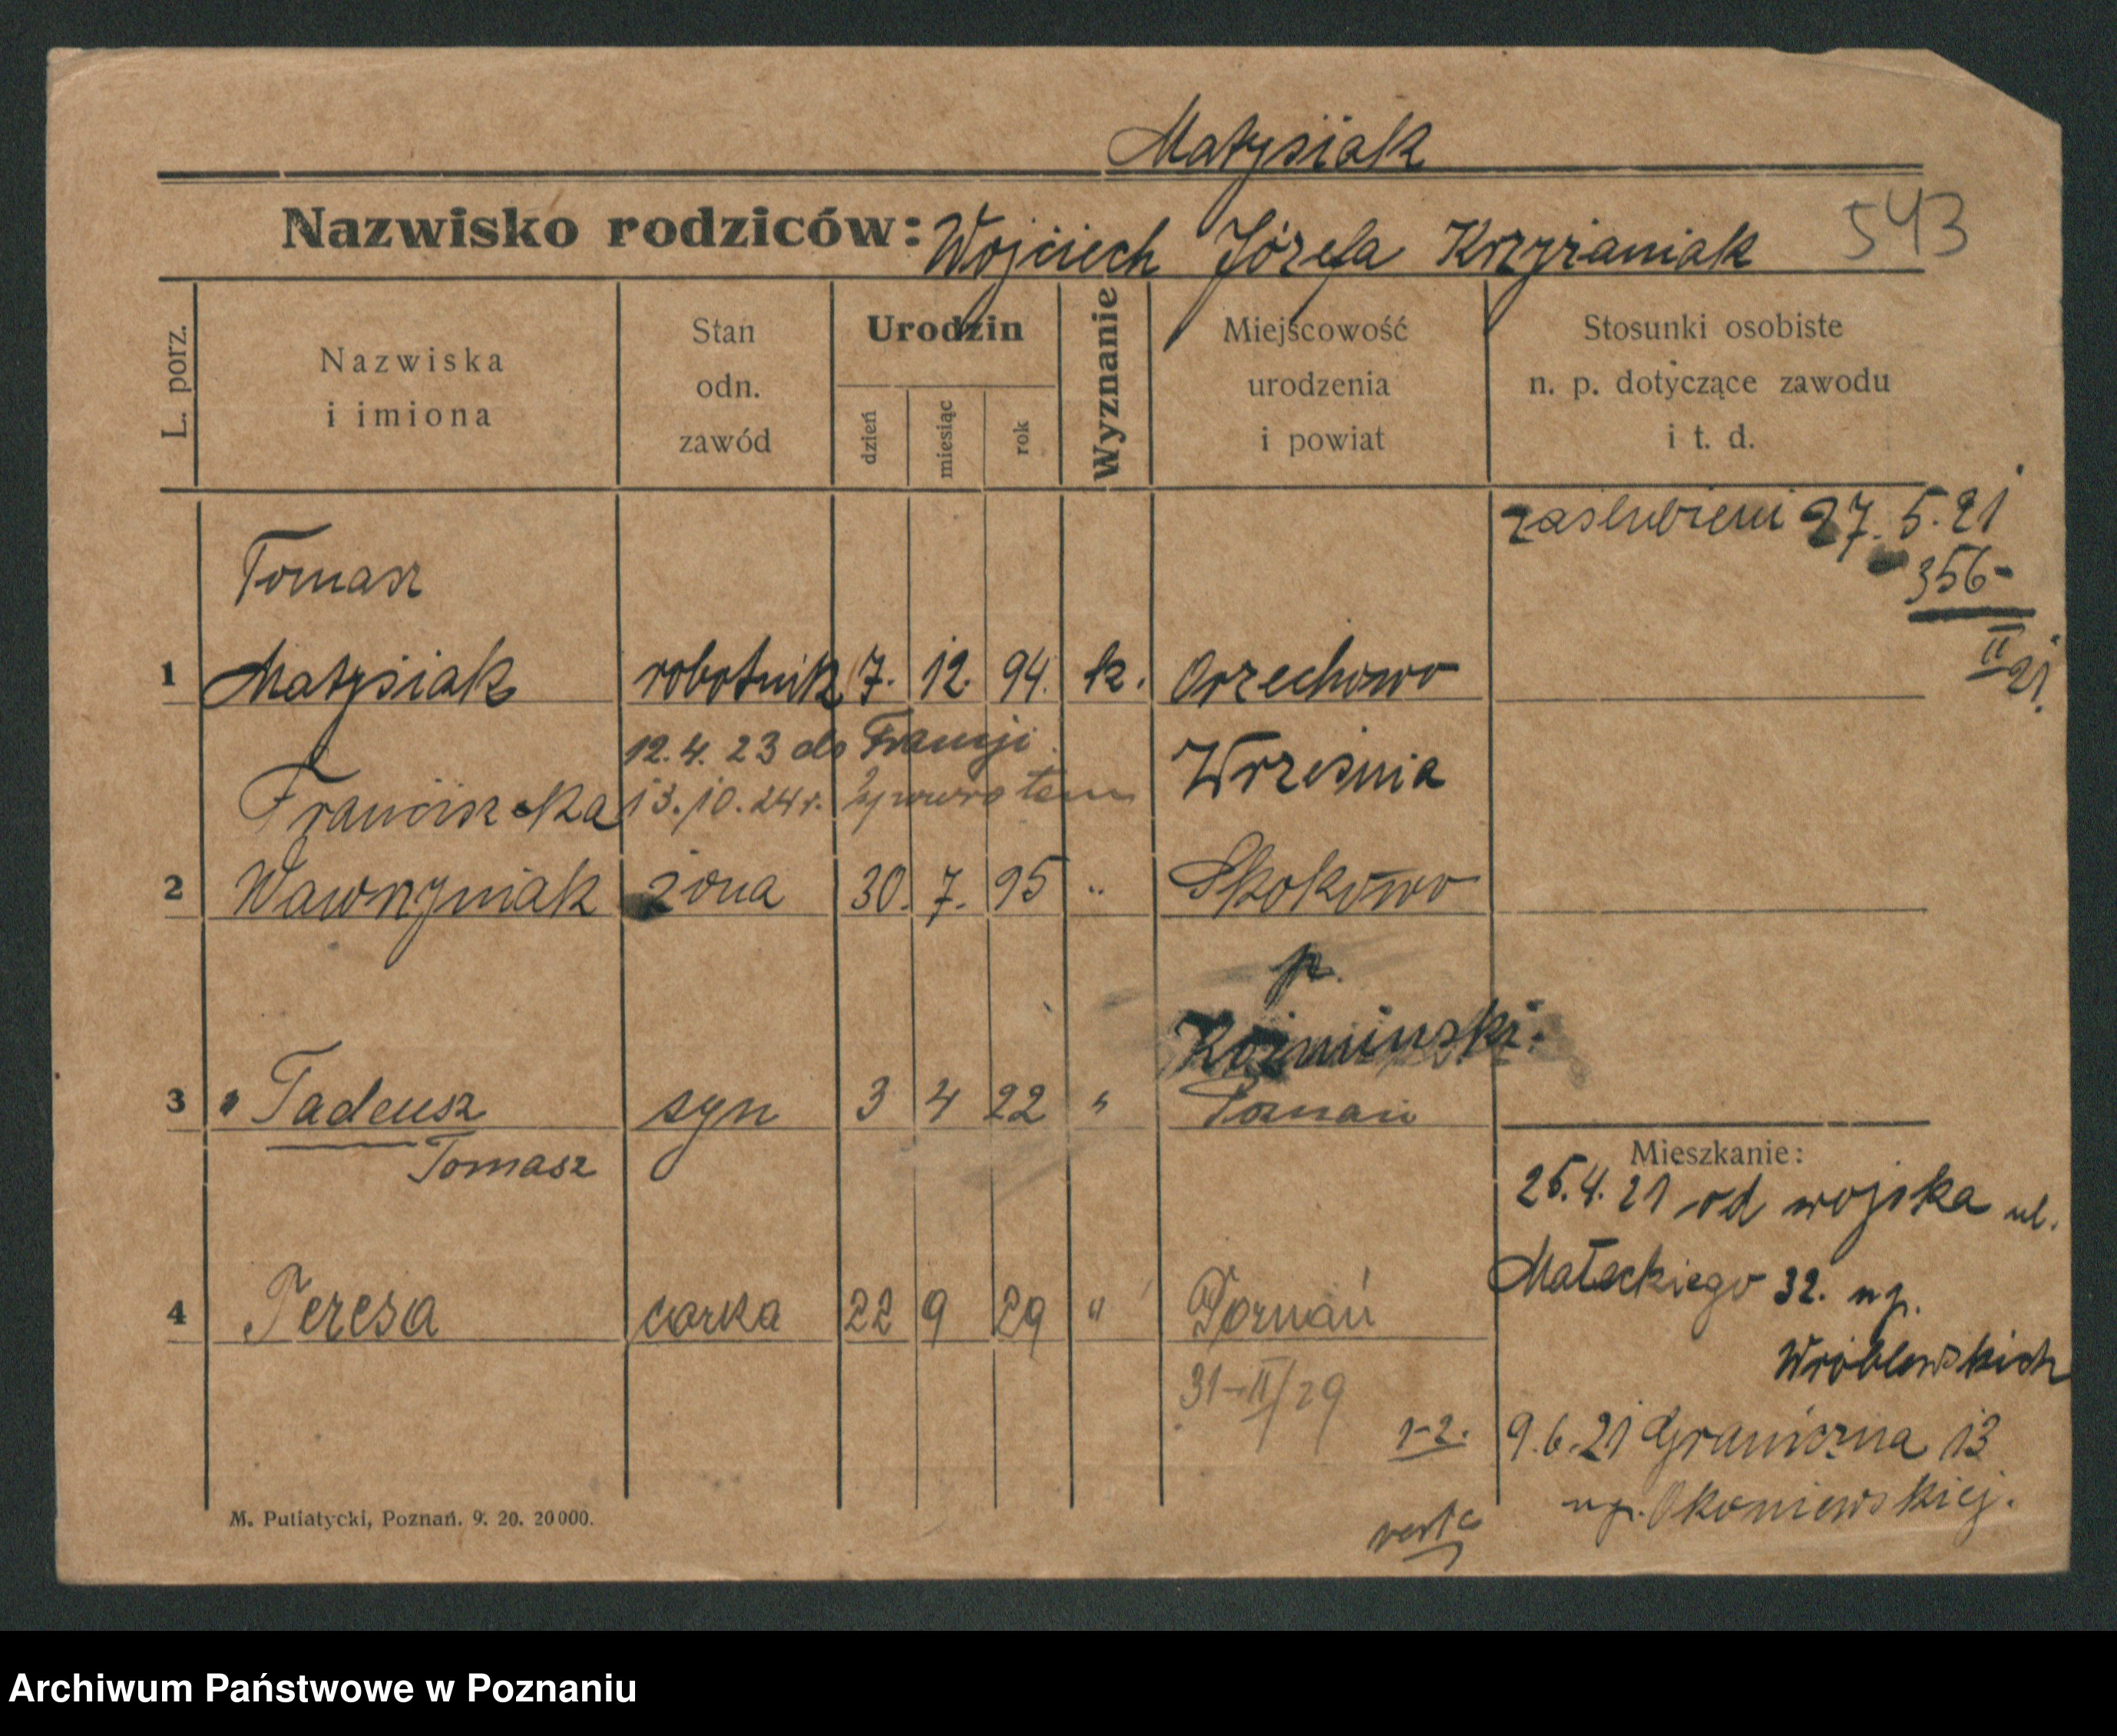 Matysiak
Nazwisko rodziców: Wojciech Józefa Krzyżaniak 543
L. porz.
Nazwiska
i imiona
Stan
odn.
zawód
Urodzin
dzień
miesiąc
rok
Wyznanie
Miejscowość
urodzenia
i powiat
Stosunki osobiste
n. p. dotyczące zawodu
i t. d.
zaślubieni 27. 5. 21
356-
II 21.
Tomasz
1 Matysiak robotnik 7. 12. 94. k. Orzechowo
12. 4. 23 do Francji Września
Franciszka 13. 10. 24 r. z powrotem
2 Wawrzyniak żona 30. 7. 95 " Skokowo
p.
Koźminski.
3 Tadeusz syn 3 4 22 " Poznań
Tomasz
4 Teresa córka 22 9 29 " Poznań
31-II/29
1-2.
Mieszkanie:
25. 4. 21 od wojska ul.
Małeckiego 32. up.
Wróblewskich
9. 6. 21 Graniczna 13
up. Okoniewskiej.
verte
M. Putiatycki, Poznań. 9. 20. 20000.
Archiwum Państwowe w Poznaniu